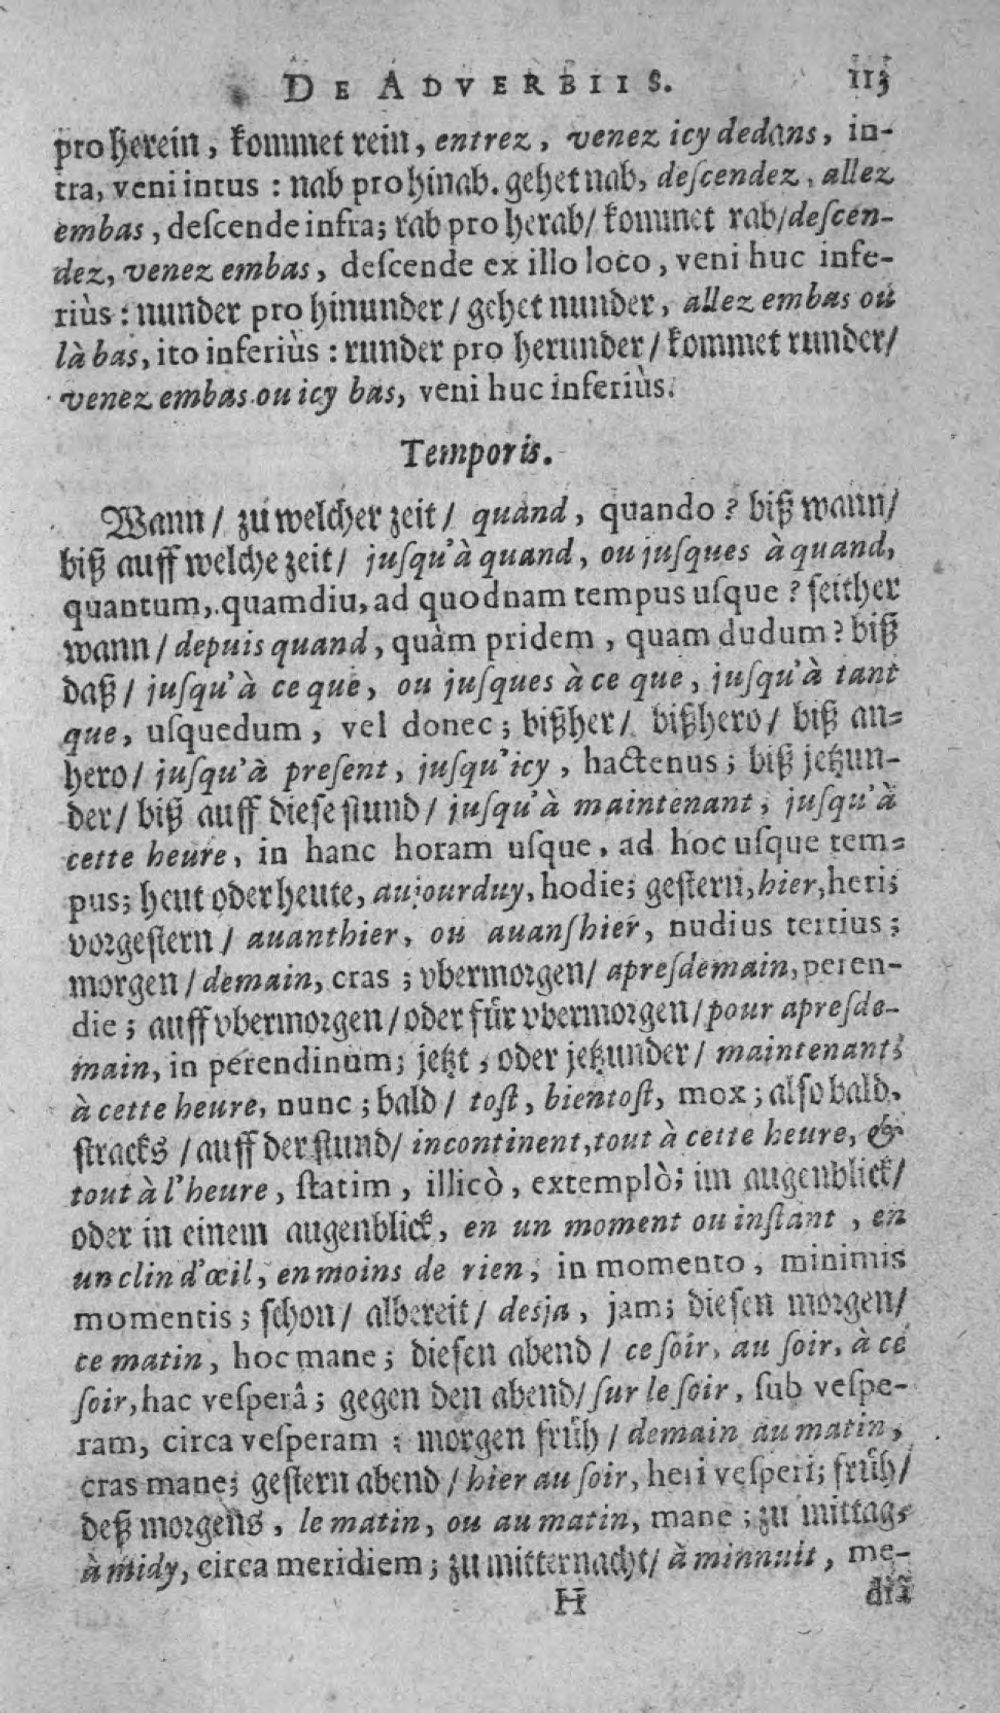 DE ADVERBIIS. 113
pro herein, kommet rein, entrez, venez icy dedans, in-
tra, veni intus : nab pro hinab. gehet nab, deſcendez, allez
embas, deſcende infra; rab pro herab/ kommet rab/deſcen-
dez, venez embas, deſcende ex illo loco, veni huc infe-
riùs : nunder pro hinunder / gehet nunder, allez embas où
là bas, ito inferiùs : runder pro herunder / kommet runder/
venez embas ou icy bas, veni huc inferiùs.
Temporis.
Wann / zu welcher zeit / quànd, quando ? biß wann/
biß auff welche zeit / juſqu'à quand, ou juſques à quand,
quantum, quamdiu, ad quodnam tempus uſque ? ſeither
wann / depuis quand, quàm pridem, quam dudum ? biß
daß / juſqu'à ce que, ou juſques à ce que, juſqu'à tant
que, uſquedum, vel donec ; bißher / bißhero / biß an-
hero / juſqu'à preſent, juſqu'icy, hactenus ; biß jetzun-
der / biß auff dieſe ſtund / juſqu'à maintenant, juſqu'à
cette heure, in hanc horam uſque, ad hoc uſque tem-
pus; heut oder heute, aujourduy, hodie; geſtern, hier, heri;
vorgeſtern / avanthier, ou avanſhier, nudius tertius ;
morgen / demain, cras ; vbermorgen/ apreſdemain, peren-
die ; auff vbermorgen / oder für vbermorgen / pour apreſde-
main, in perendinum; jetzt, oder jetzunder / maintenant,
à cette heure, nunc ; bald / toſt, bientoſt, mox ; alſo bald,
ſtracks / auff der ſtund/ incontinent, tout à cette heure, &
tout à l'heure, ſtatim, illicò, extemplò; im augenblick/
oder in einem augenblick, en un moment ou inſtant, en
un clin d'œil, en moins de rien, in momento, minimis
momentis ; ſchon / albereit / desja, jam; dieſen morgen/
ce matin, hoc mane ; dieſen abend / ce ſoir, au ſoir, à ce
ſoir, hac veſperâ ; gegen den abend/ ſur le ſoir, ſub veſpe-
ram, circa veſperam ; morgen früh / demain au matin,
cras mane; geſtern abend / hier au ſoir, heri veſperi; früh/
deß morgens, le matin, ou au matin, mane ; zu mittag,
à midy, circa meridiem ; zu mitternacht/ à minnuit, me-
H diã